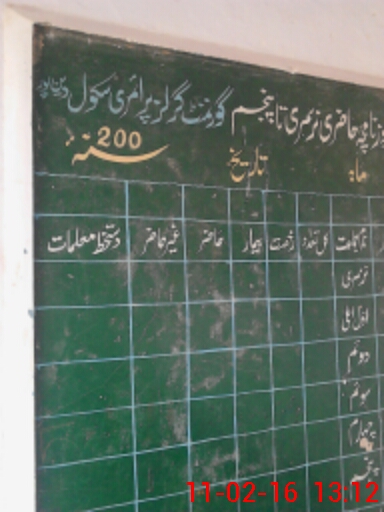 حاضری نرسری تا پنجم گورنمنٹ گرلز پرائمری سکول
ماہ تاریخ 200 سنہ
نام جماعت کل تعداد رخصت بیمار حاضر غیر حاضر دستخط معلمات
نرسری
اول اعلی
دوئم
سوئم
چہارم
پنجم
11-02-16 13:12